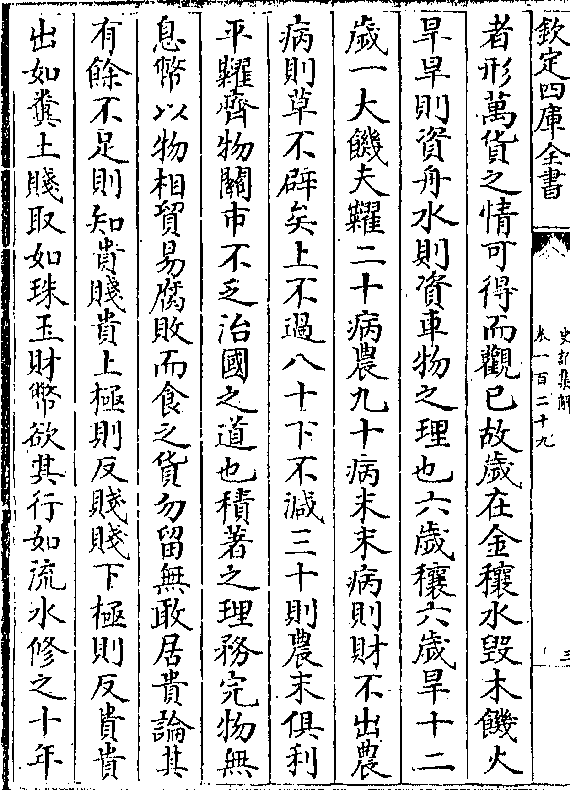 欽定四庫全書
史記集解
卷一百二十九
三
者形萬貨之情可得而觀已故歲在金穰水毀木饑火
旱旱則資舟水則資車物之理也六歲穰六歲旱十二
歲一大饑夫糶二十病農九十病末末病則財不出農
病則草不辟矣上不過八十下不減三十則農末俱利
平糶齊物關市不乏治國之道也積著之理務完物無
息幣以物相貿易腐敗而食之貨勿留無敢居貴論其
有餘不足則知貴賤貴上極則反賤賤下極則反貴貴
出如糞土賤取如珠玉財幣欲其行如流水修之十年